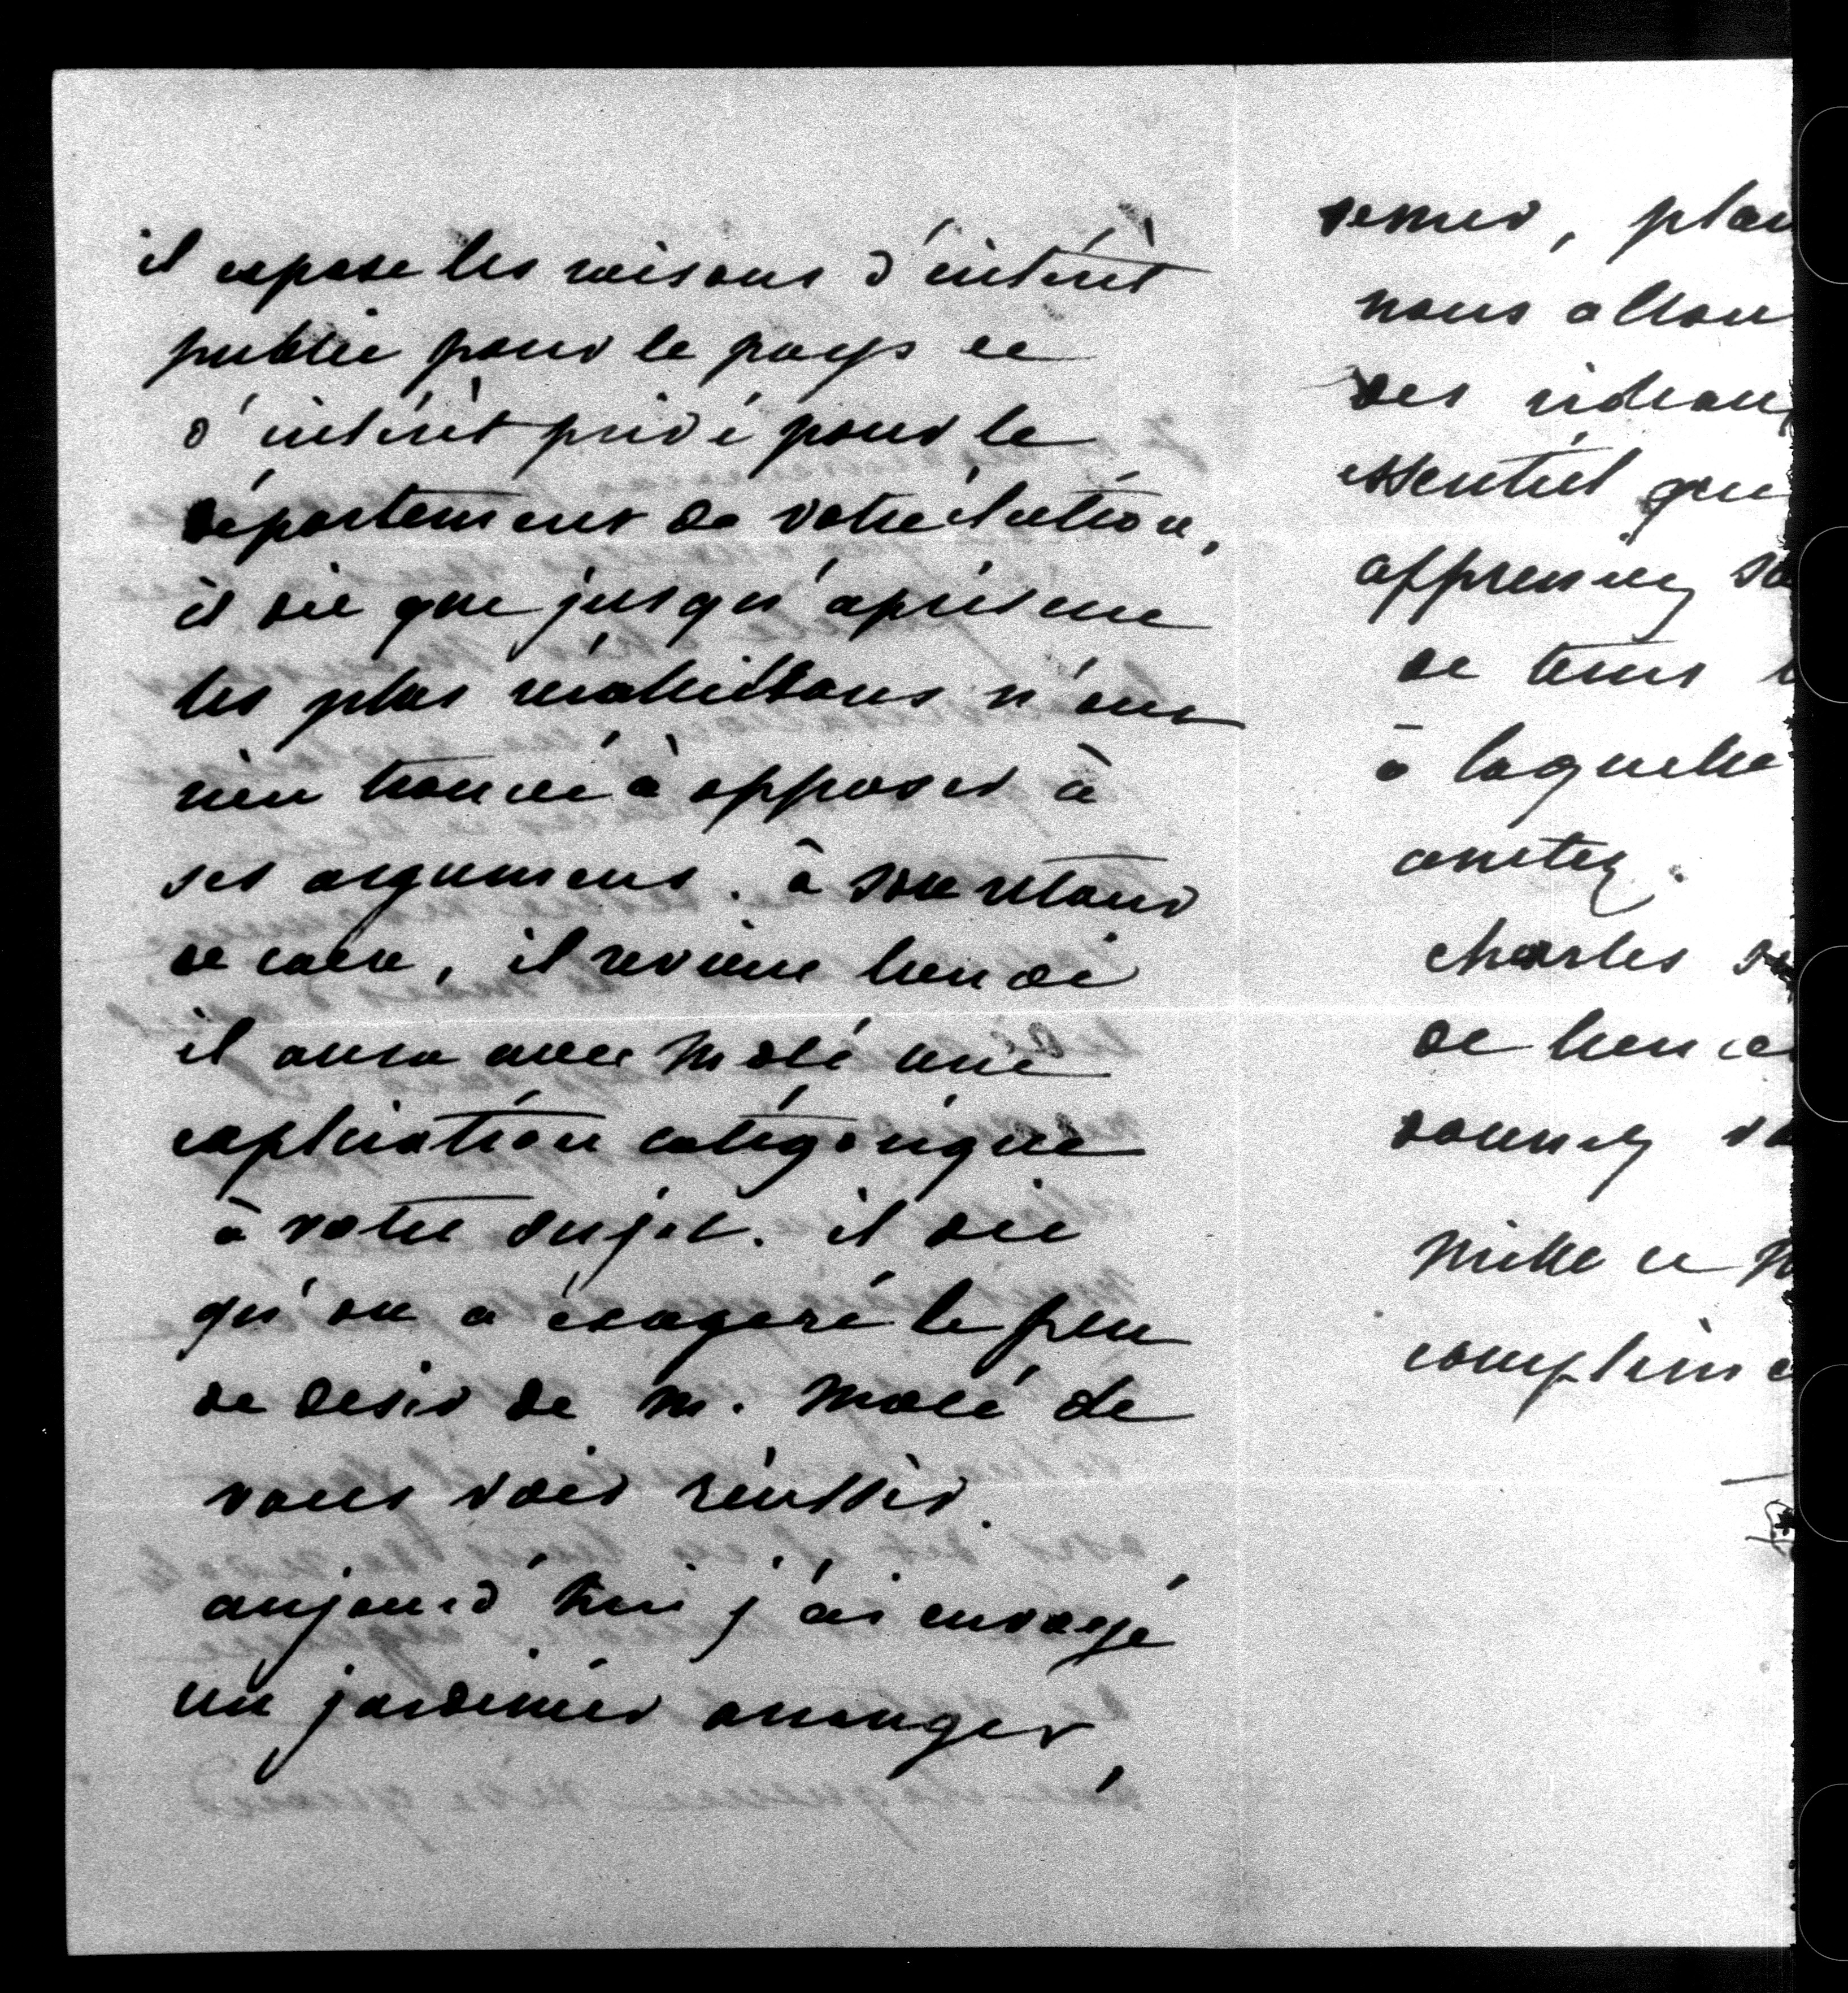 il expose les raisons d'intérêt
public pour le pays et
d'intérêt privé pour le
département de votre élection,
il dit que jusqu'à présent
les plus récalcitrans n'ont
rien trouvé à opposer à
ses argumens. à son retour
de caen, il revient lundi
il aura avec Molé une
explication catégorique
à votre sujet. il dit
qu'on a exagéré le peu
de desir de M. Molé de
vous voir réussir.
aujourd'hui j'ai envoyé
un jardinier arranger,
semer, plan
nous allon
des rideaux
essentiel que
appreniez
de tems
à laquelle
arretez.
charles
de
donnez
Mille et
complim